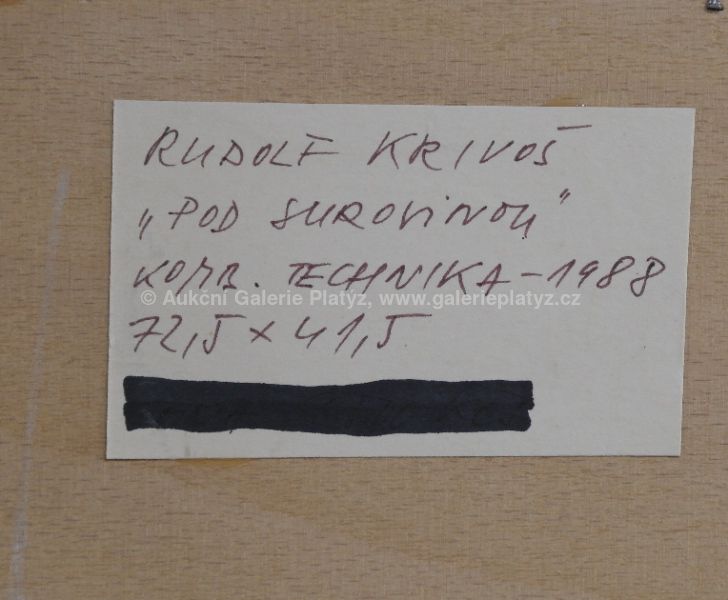 RUDOLF KRIVOŠ
„POD SUROVINOU"
KOMB. TECHNIKA - 1988
© Aukční Galerie Platýz, www.galerieplatyz.cz
72,5 x 41,5